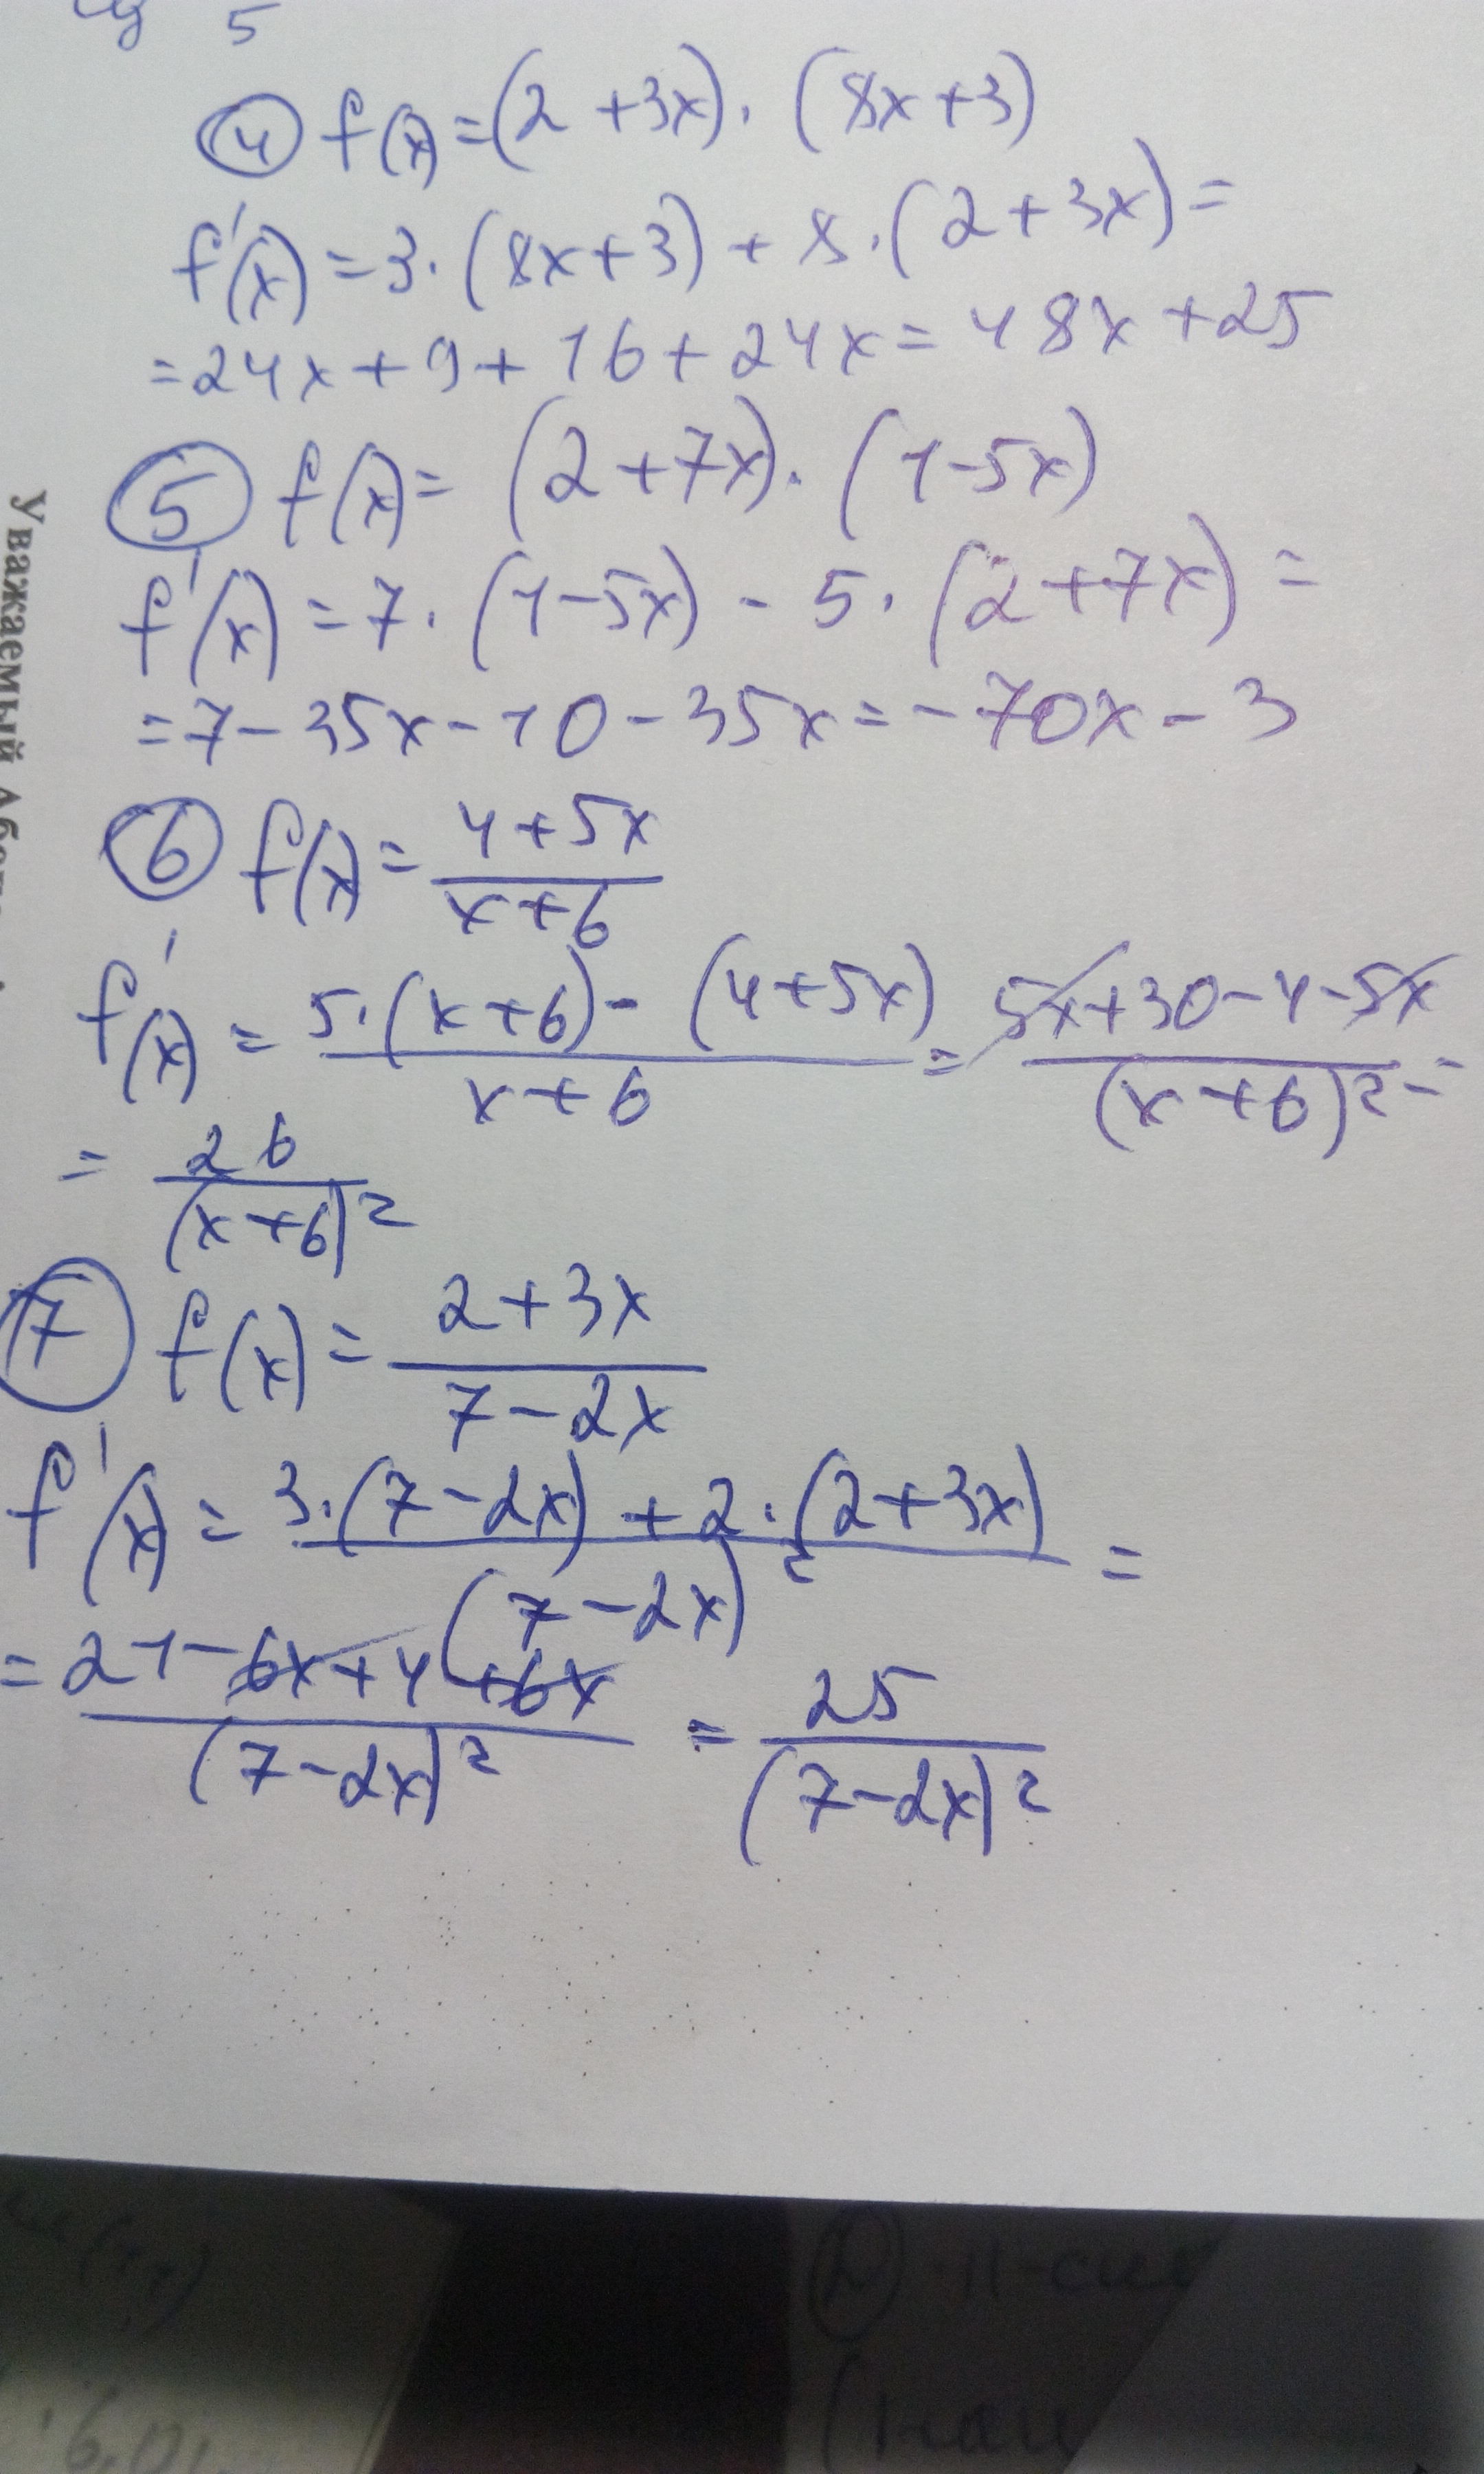 5
④ f(x) = (2 + 3x) · (8x + 3)
f'(x) = 3 · (8x + 3) + 8 · (2 + 3x) =
= 24x + 9 + 16 + 24x = 48x + 25
⑤ f(x) = (2 + 7x) · (1 - 5x)
f'(x) = 7 · (1 - 5x) - 5 · (2 + 7x) =
= 7 - 35x - 10 - 35x = -70x - 3
⑥ f(x) = (4 + 5x)/(x + 6)
f'(x) = (5 · (x + 6) - (4 + 5x))/(x + 6) = (5x + 30 - 4 - 5x)/(x + 6)² =
= 26/(x + 6)²
⑦ f(x) = (2 + 3x)/(7 - 2x)
f'(x) = (3 · (7 - 2x) + 2 · (2 + 3x))/(7 - 2x)² =
= (21 - 6x + 4 + 6x)/(7 - 2x)² = 25/(7 - 2x)²
Уважаемый